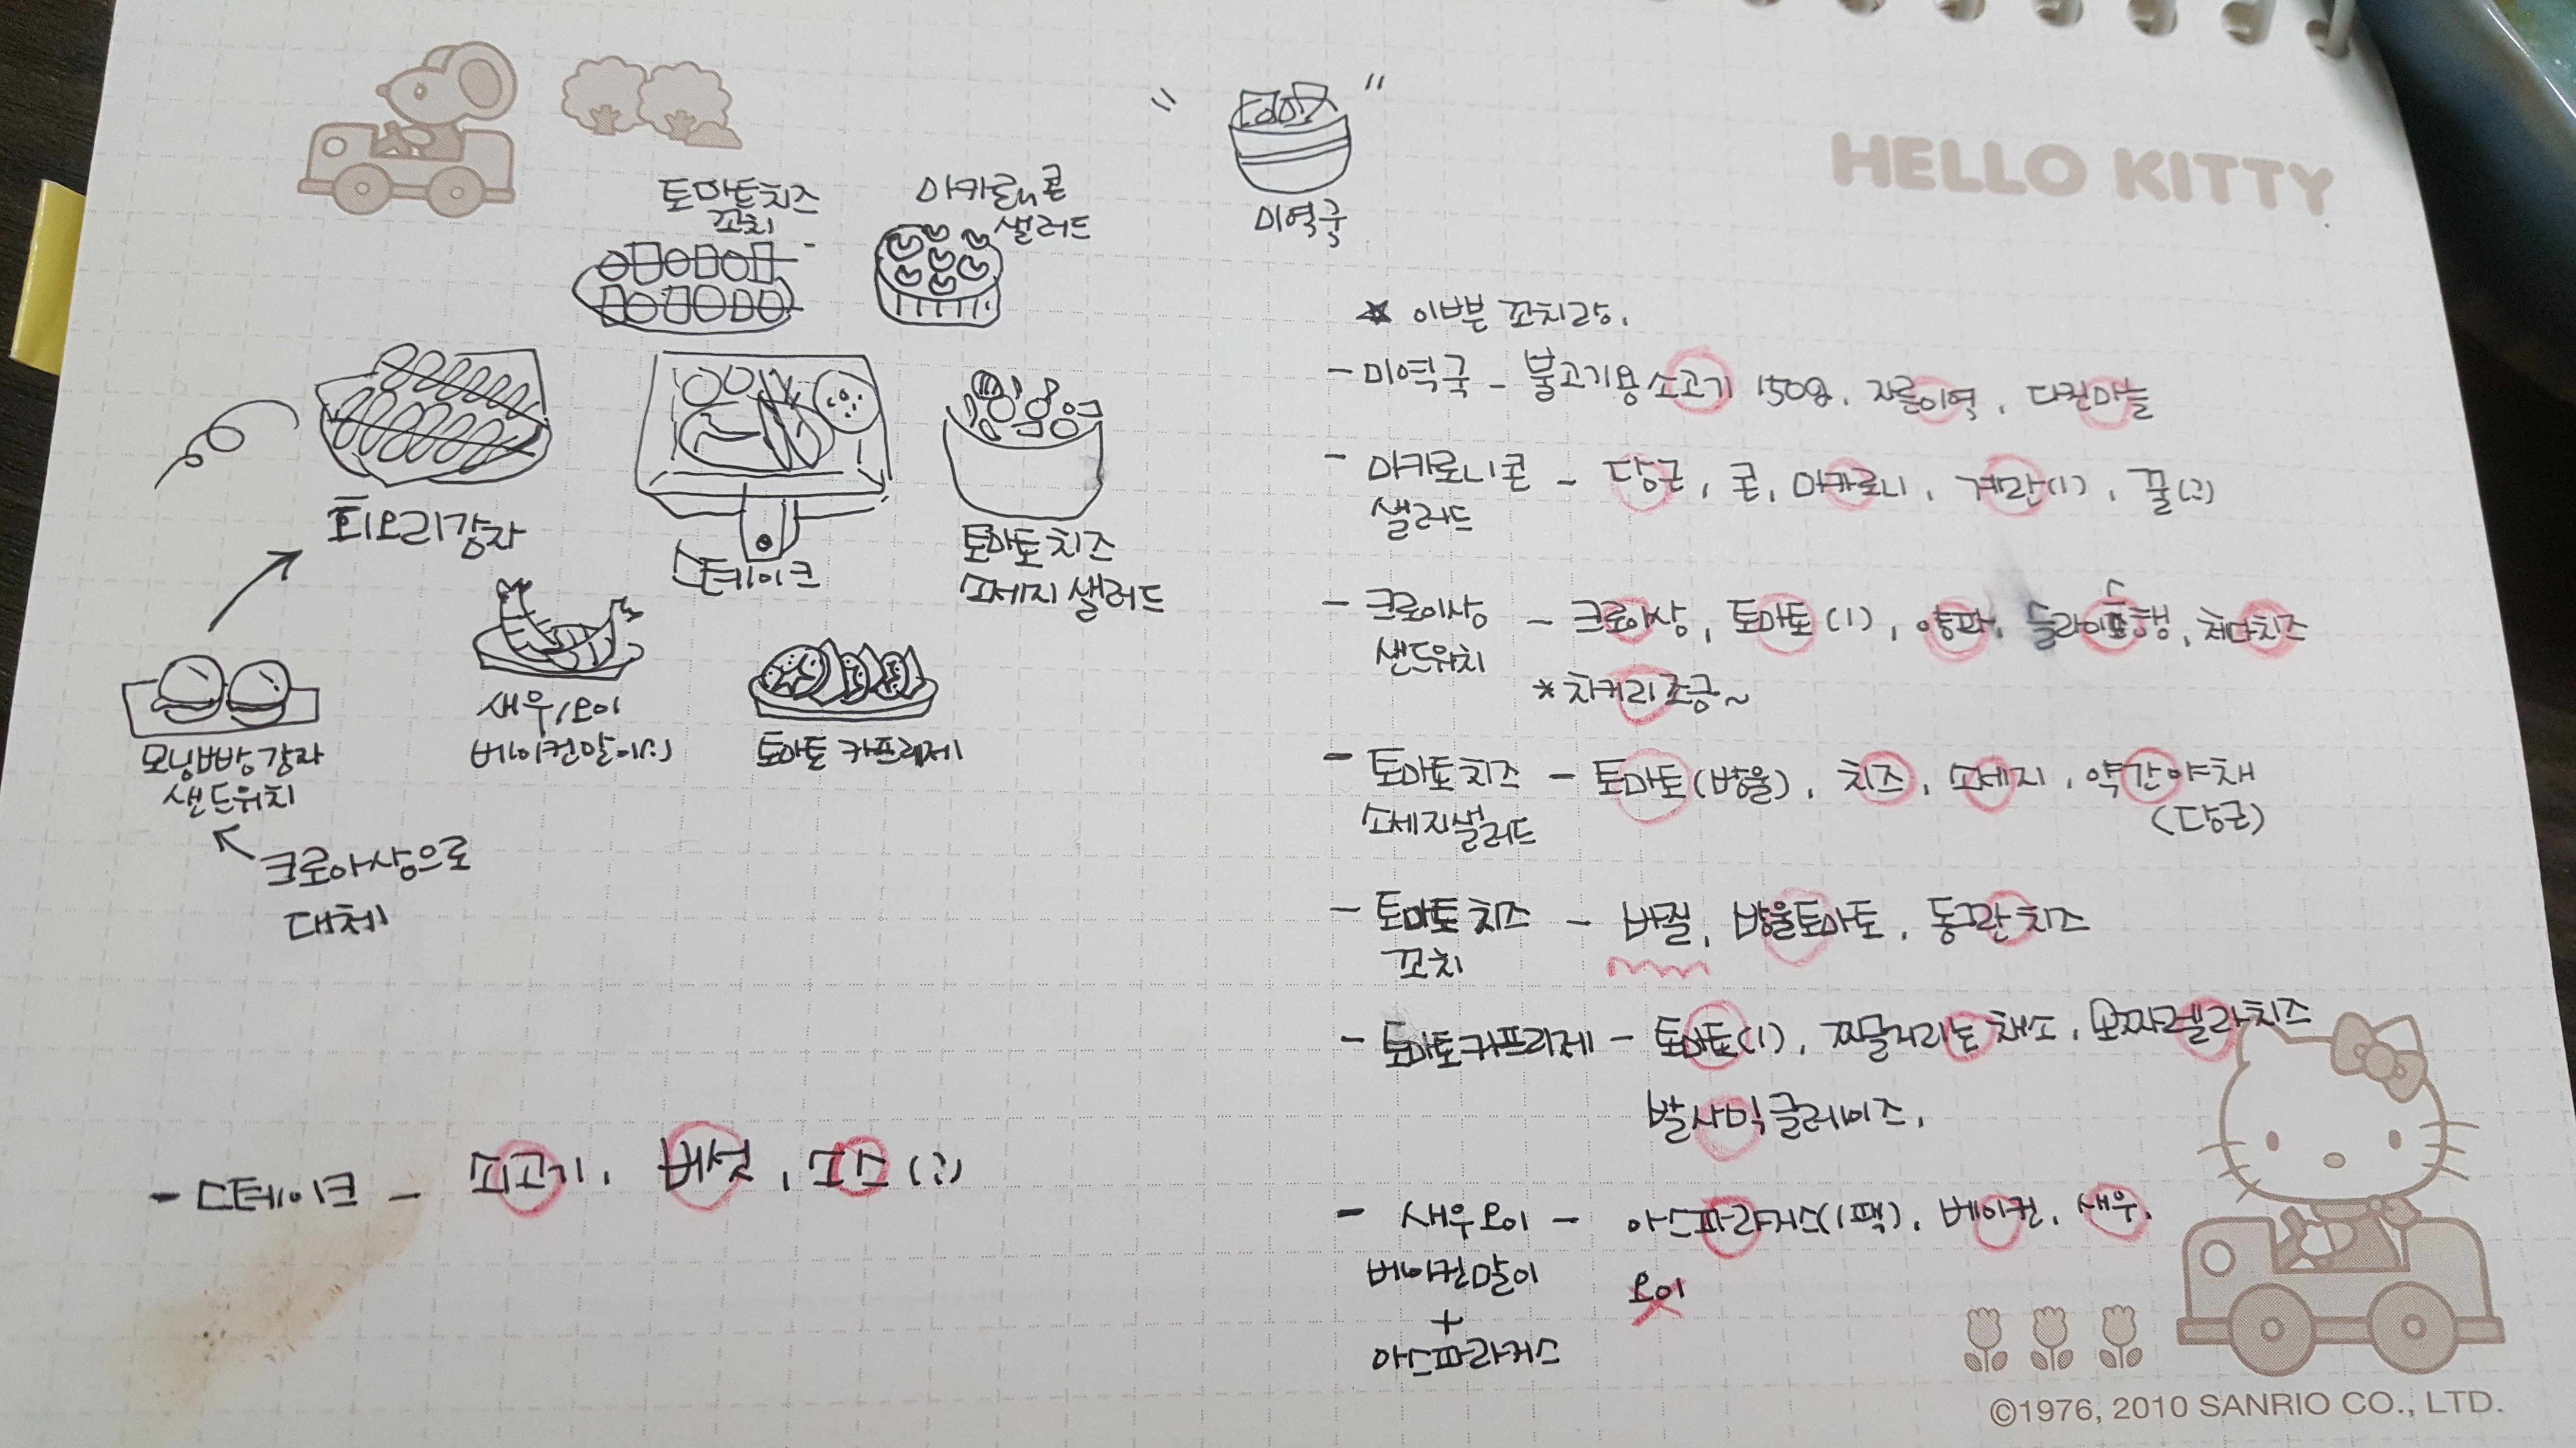 HELLO KITTY
미역국
토마토치즈
꼬치
마카로니콘
샐러드
회오리감자
스테이크
토마토치즈
소세지샐러드
새우/오이
베이컨말이(?)
토마토 카프레제
모닝빵감자
샌드위치
크로아상으로
대체
- 스테이크 - 쇠고기, 버섯, 소스(?)
★ 이쁜 꼬치랑.
- 미역국 - 불고기용 소고기 150g, 자른미역, 다진마늘
- 마카로니콘 - 당근, 콘, 마카로니, 계란(1), 꿀(?)
샐러드
- 크로아상 - 크로아상, 토마토(1), 양파, 슬라이스햄, 체다치즈
샌드위치
*치커리조금~
- 토마토치즈 - 토마토(방울), 치즈, 소세지, 약간야채
소세지샐러드
(당근)
- 토마토치즈 - 바질, 방울토마토, 동그란치즈
꼬치
- 토마토카프레제 - 토마토(1), 찌끌거리는 채소, 모짜렐라치즈
발사믹글레이즈.
- 새우오이 - 아스파라거스(1팩), 베이컨, 새우,
베이컨말이
오이
+
아스파라거스
©1976, 2010 SANRIO CO., LTD.